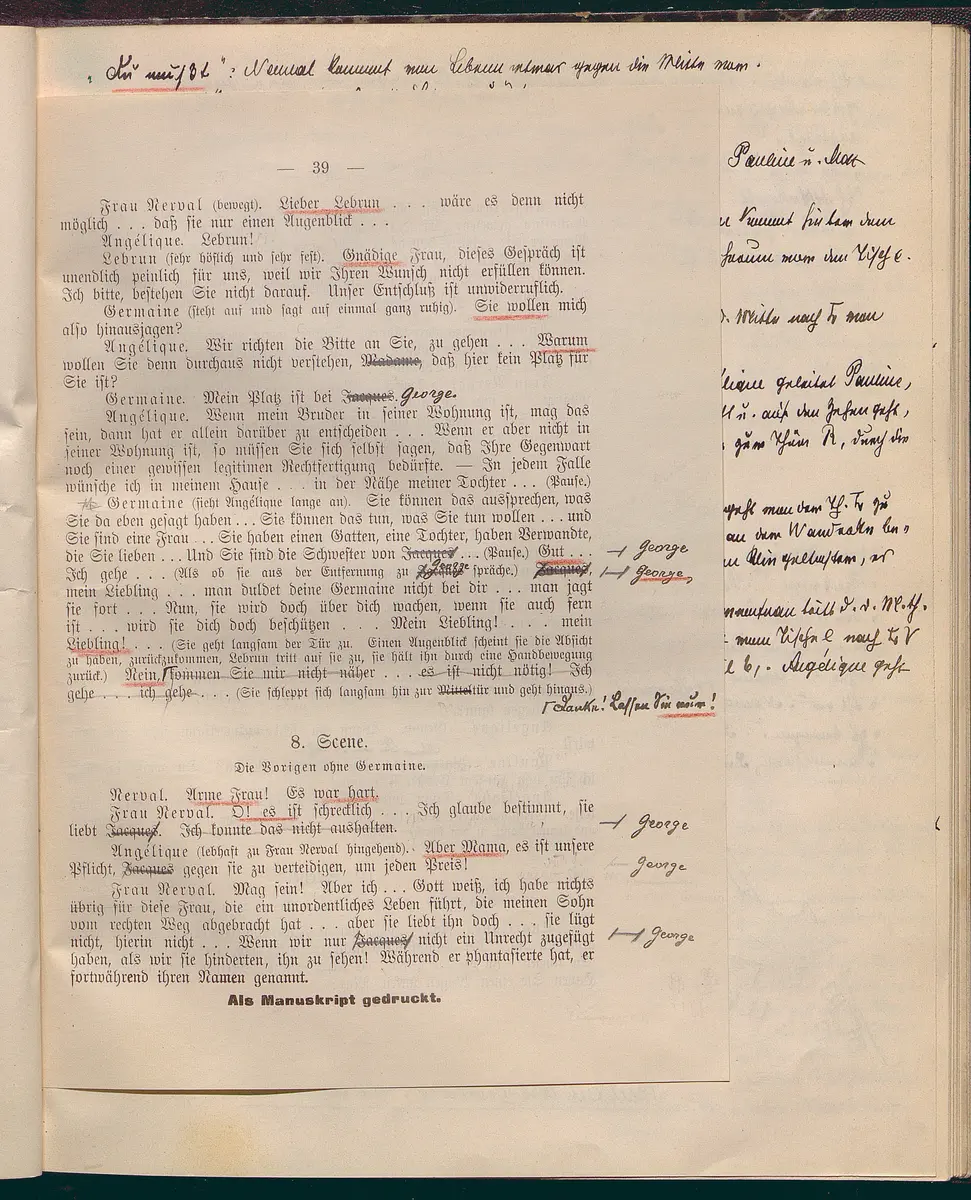 „Du mußt“: Nerval kommt von Lebrun etwas gegen die Mitte vor.
— 39 —
Frau Nerval (bewegt). Lieber Lebrun . . . wäre es denn nicht
möglich . . . daß sie nur einen Augenblick . . .
Angélique. Lebrun!
Lebrun (sehr höflich und sehr fest). Gnädige Frau, dieses Gespräch ist
unendlich peinlich für uns, weil wir Ihren Wunsch nicht erfüllen können.
Ich bitte, bestehen Sie nicht darauf. Unser Entschluß ist unwiderruflich.
Germaine (steht auf und sagt auf einmal ganz ruhig). Sie wollen mich
also hinausjagen?
Angélique. Wir richten die Bitte an Sie, zu gehen . . . Warum
wollen Sie denn durchaus nicht verstehen, Madame, daß hier kein Platz für
Sie ist?
Germaine. Mein Platz ist bei Jacques. George.
Angélique. Wenn mein Bruder in seiner Wohnung ist, mag das
sein, dann hat er allein darüber zu entscheiden . . . Wenn er aber nicht in
seiner Wohnung ist, so müssen Sie sich selbst sagen, daß Ihre Gegenwart
noch einer gewissen legitimen Rechtfertigung bedürfte. — In jedem Falle
wünsche ich in meinem Hause . . . in der Nähe meiner Tochter . . . (Pause.)
Germaine (sieht Angélique lange an). Sie können das aussprechen, was
Sie da eben gesagt haben . . . Sie können das tun, was Sie tun wollen . . . und
Sie sind eine Frau . . . Sie haben einen Gatten, eine Tochter, haben Verwandte,
die Sie lieben . . . Und Sie sind die Schwester von Jacques . . . (Pause.) Gut . . . George
Ich gehe . . . (Als ob sie aus der Entfernung zu Jacques George spräche.) Jacques, George,
mein Liebling . . . man duldet deine Germaine nicht bei dir . . . man jagt
sie fort . . . Nun, sie wird doch über dich wachen, wenn sie auch fern
ist . . . wird sie dich doch beschützen . . . Mein Liebling! . . . mein
Liebling! . . . (Sie geht langsam der Tür zu. Einen Augenblick scheint sie die Absicht
zu haben, zurückzukommen, Lebrun tritt auf sie zu, sie hält ihn durch eine Handbewegung
zurück.) Nein, kommen Sie mir nicht näher . . . es ist nicht nötig! Ich
gehe . . . ich gehe . . . (Sie schleppt sich langsam hin zur Mitteltür und geht hinaus.)
Danke! Lassen Sie nur!
8. Scene.
Die Vorigen ohne Germaine.
Nerval. Arme Frau! Es war hart.
Frau Nerval. O! es ist schrecklich . . . Ich glaube bestimmt, sie
liebt Jacques. Ich konnte das nicht aushalten. George
Angélique (lebhaft zu Frau Nerval hingehend). Aber Mama, es ist unsere
Pflicht, Jacques gegen sie zu verteidigen, um jeden Preis! George
Frau Nerval. Mag sein! Aber ich . . . Gott weiß, ich habe nichts
übrig für diese Frau, die ein unordentliches Leben führt, die meinen Sohn
vom rechten Weg abgebracht hat . . . aber sie liebt ihn doch . . . sie lügt
nicht, hierin nicht . . . Wenn wir nur Jacques nicht ein Unrecht zugefügt George
haben, als wir sie hinderten, ihn zu sehen! Während er phantasierte hat, er
fortwährend ihren Namen genannt.
Als Manuskript gedruckt.
Pauline u. Max
kommt hinter dem
herum vor den Tisch C.
d. Mitte nach L von
geleitet Pauline,
u. auf den Zehen geht,
zur Thür R, durch die
geht von der Th. L zu
an dem Wandecke
Klingelkasten, er
tritt d. d. M.th.
vom Tisch C nach L V
Angélique geht